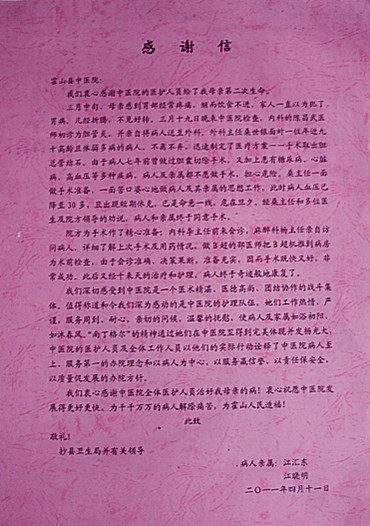 感谢信
霍山县中医院:
我们衷心感谢中医院的医护人员给了我母亲第二次生命。
三月中旬,母亲感到胃部经常疼痛,继而饮食不进。家人一直以为犯了
胃病,几经折腾,不见好转。三月十九日晚来中医院检查,内科的陈昌武医
师初诊为胆管炎。并亲自将病人送至外科。外科主任桑世银面对一位年近九
十高龄且体弱多病的病人,不离不弃,迅速制定了医疗方案——手术取出胆
总管结石。由于病人七年前曾做过胆囊切除手术,又加上患有糖尿病、心脏
病、高血压等多种疾病,病人及亲属都不愿做手术,担心危险。桑主任一面
做手术准备,一面苦口婆心地做病人及其亲属的思想工作。此时病人血压已
降至30多,且出现短期休克,已是命悬一线,危在旦夕。经桑主任和多位医
生及院方领导的劝说,病人和亲属终于同意手术。
院方为手术作了精心准备:内科李主任前来会诊,麻醉科杨主任亲自访
问病人,详细了解上次手术及用药情况。做B超的郑医师把B超机推到病房
为术前检查。由于会诊准确、决策果断,准备充实,因而手术既快又好,非
常成功。此后又经十来天的治疗和护理,病人终于奇迹般地康复了。
我们深切感受到中医院是一个医术精湛,医德高尚,团结协作的战斗集
体。值得称道和令我们深为感动的是中医院的护理队伍,她们工作热情、严
谨,服务周到、耐心。亲切的问候,温馨的抚慰,使病人及家属如浴初阳,
如沐春风。“南丁格尔”的精神通过她们在中医院里得到完美体现并发扬光大。
中医院的医护人员及全体工作人员以他们的实际行动诠释了中医院病人至
上,服务第一的办院理念和以病人为中心,以服务赢信誉,以责任保安全,
以质量促发展的办院方针。
我们衷心感谢中医院全体医护人员治好我母亲的病!衷心祝愿中医院发
展得更好更快,为千千万万的病人解除痛苦,为霍山人民造福!
此致
敬礼!
抄县卫生局并有关领导
病人亲属:江汇东
江晓明
二〇一一年四月十一日